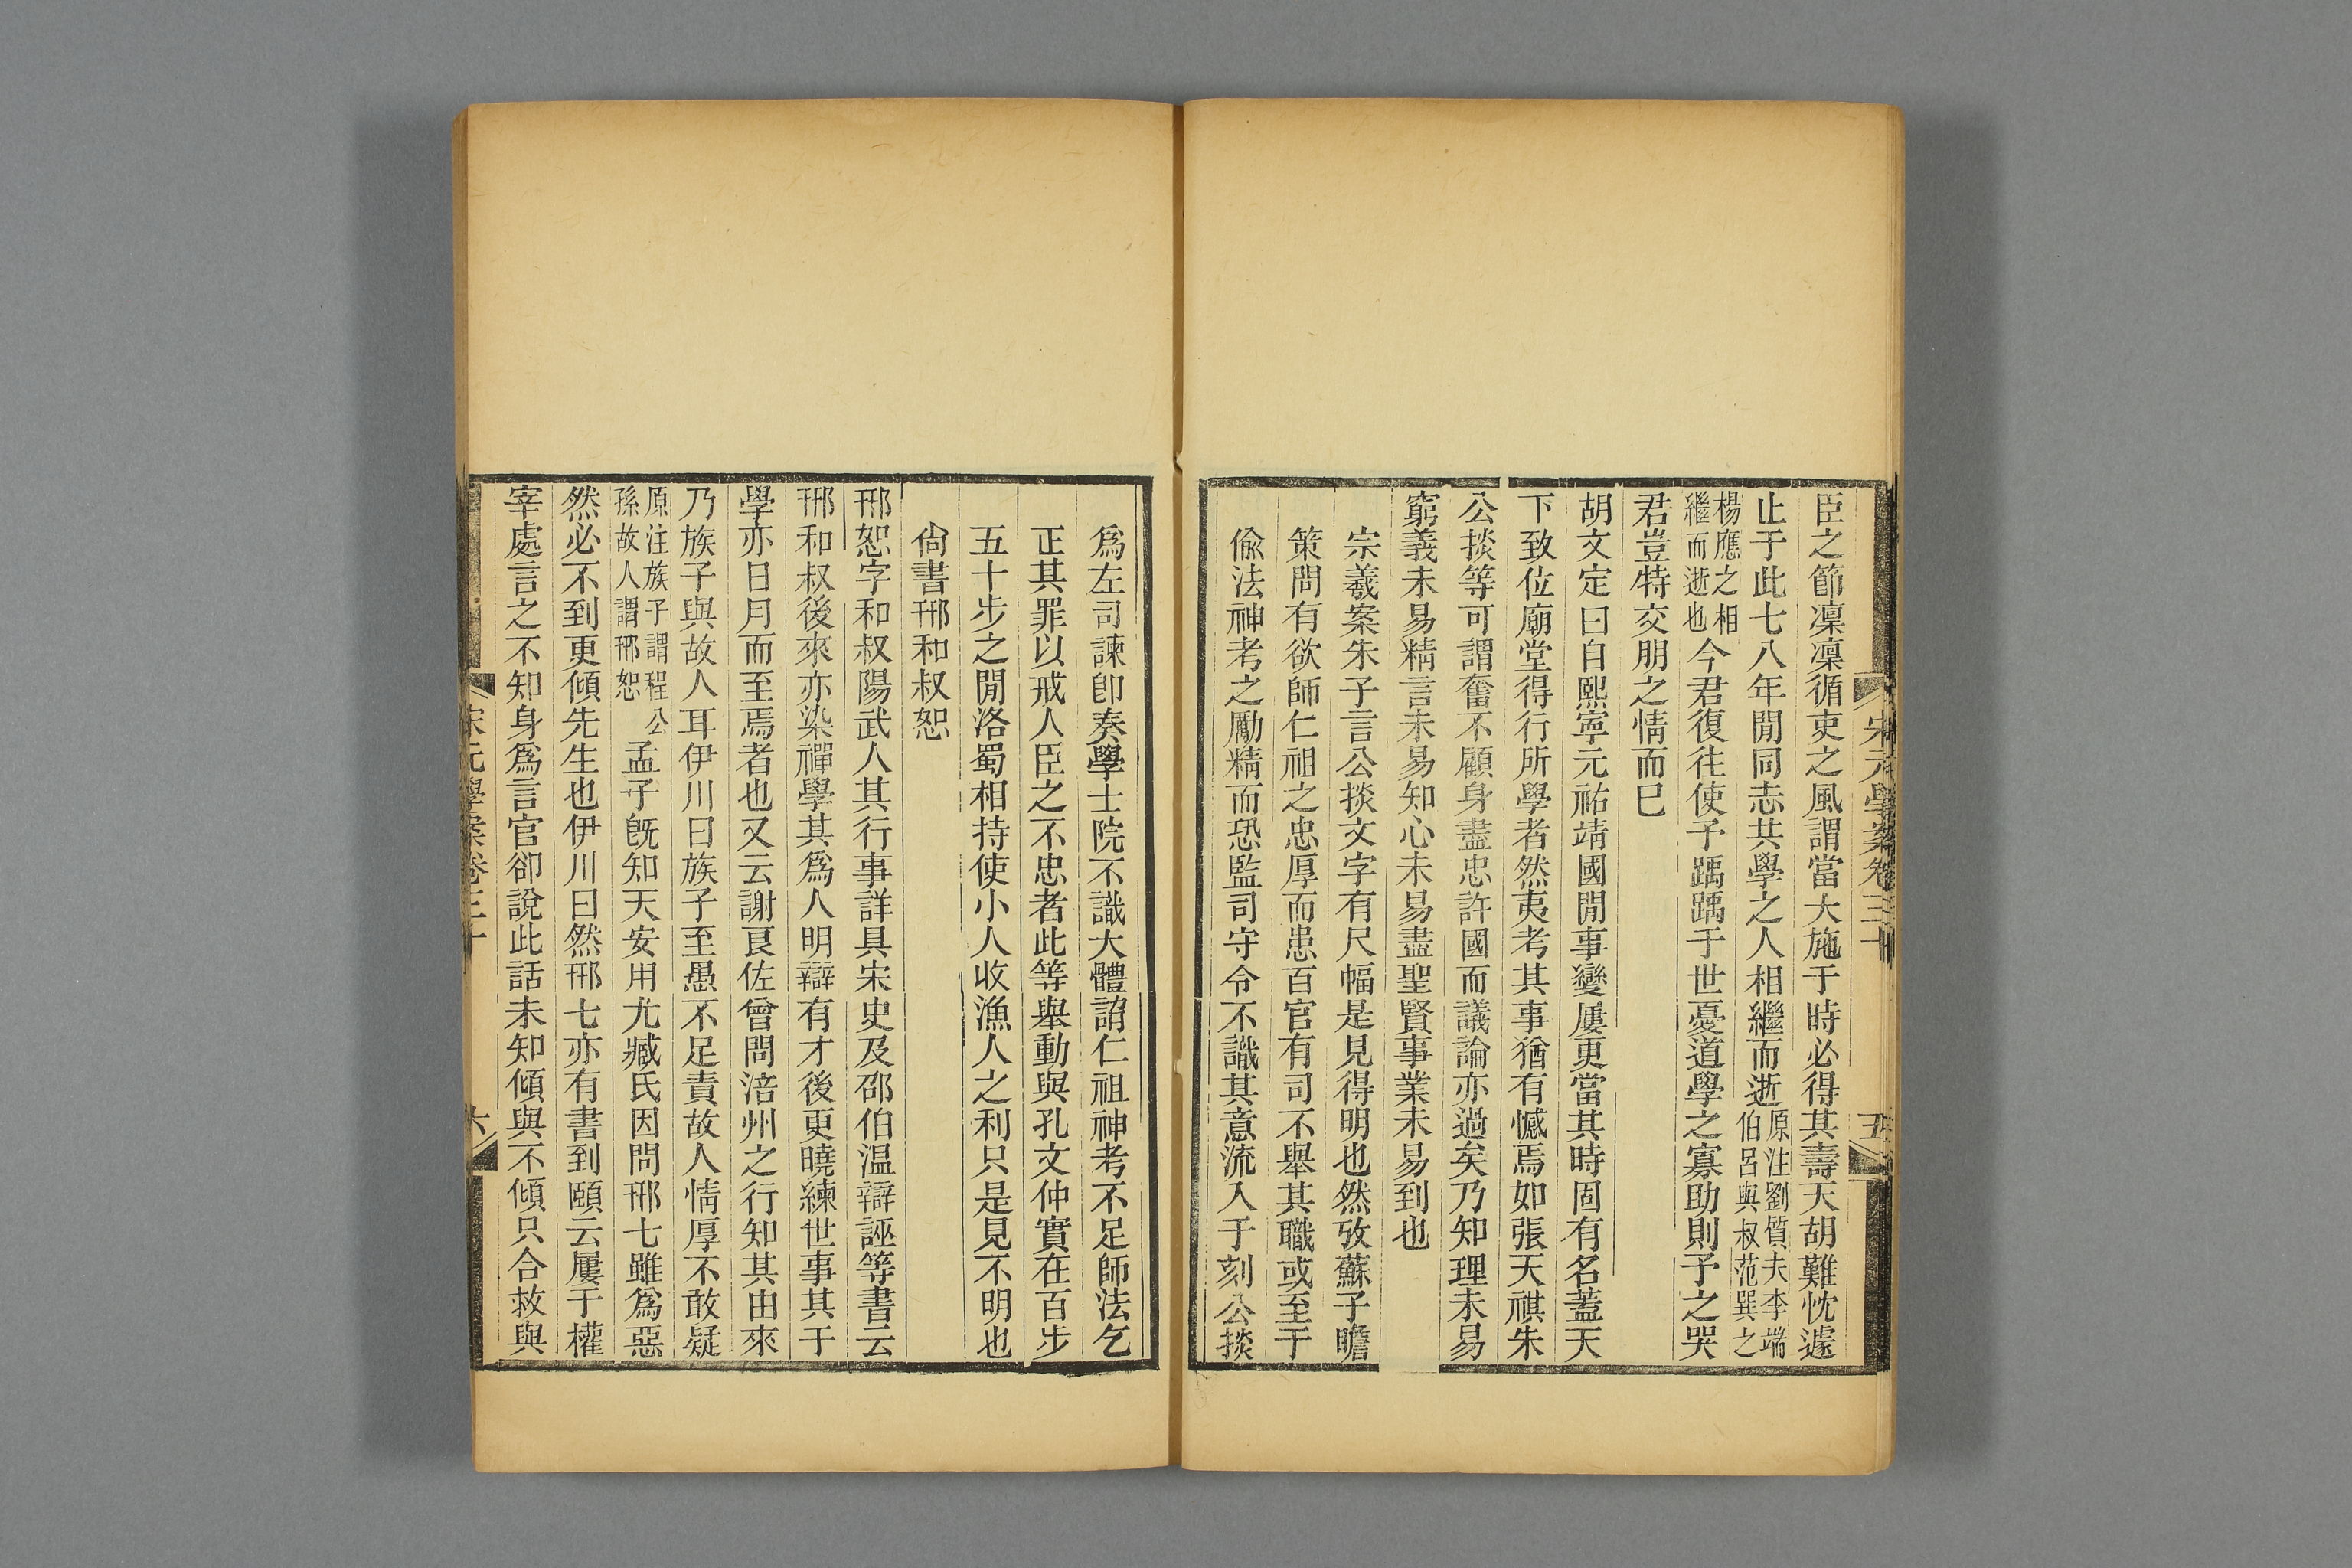 宋元學案卷三十
五
臣之節凜凜循吏之風謂當大施于時必得其壽天胡難忱遽
止于此七八年閒同志共學之人相繼而逝原注劉質夫李端伯呂與叔范巽之
楊應之相繼而逝也今君復往使予踽踽于世憂道學之寡助則予之哭
君豈特交朋之情而已
胡文定曰自熙寧元祐靖國閒事變屢更當其時固有名蓋天
下致位廟堂得行所學者然夷考其事猶有憾焉如張天祺朱
公掞等可謂奮不顧身盡忠許國而議論亦過矣乃知理未易
窮義未易精言未易知心未易盡聖賢事業未易到也
宗羲案朱子言公掞文字有尺幅是見得明也然攷蘇子瞻
策問有欲師仁祖之忠厚而患百官有司不舉其職或至于
偸法神考之勵精而恐監司守令不識其意流入于刻公掞
爲左司諫卽奏學士院不識大體誚仁祖神考不足師法乞
正其罪以戒人臣之不忠者此等舉動與孔文仲實在百步
五十步之閒洛蜀相持使小人收漁人之利只是見不明也
尙書邢和叔恕
邢恕字和叔陽武人其行事詳具宋史及邵伯温辯誣等書云
邢和叔後來亦染禪學其爲人明辯有才後更曉練世事其于
學亦日月而至焉者也又云謝良佐曾問涪州之行知其由來
乃族子與故人耳伊川曰族子至愚不足責故人情厚不敢疑
原注族子謂程公孫故人謂邢恕孟子旣知天安用尤臧氏因問邢七雖爲惡
然必不到更傾先生也伊川曰然邢七亦有書到頤云屢于權
宰處言之不知身爲言官卻說此話未知傾與不傾只合救與
宋元學案卷三十
六